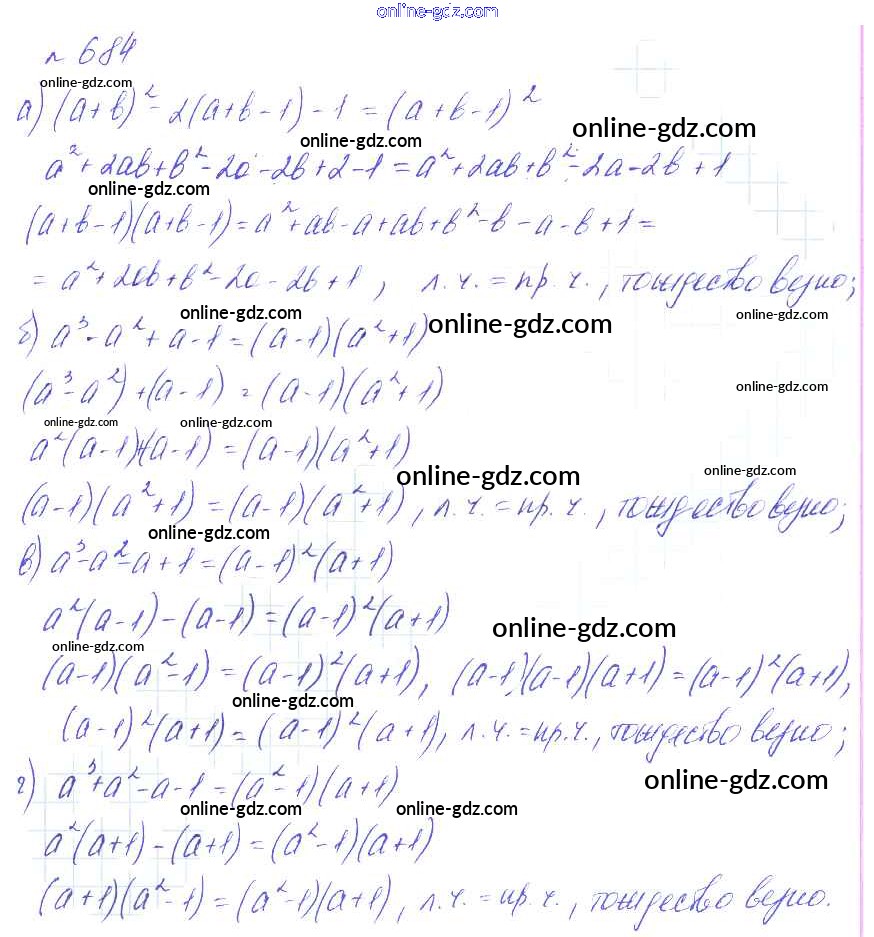 online-gdz.com
№ 684
online-gdz.com
а) (a+b)² - 2(a+b-1) - 1 = (a+b-1)²
online-gdz.com
online-gdz.com
a² + 2ab + b² - 2a - 2b + 2 - 1 = a² + 2ab + b² - 2a - 2b + 1
online-gdz.com
(a+b-1)(a+b-1) = a² + ab - a + ab + b² - b - a - b + 1 =
= a² + 2ab + b² - 2a - 2b + 1, л.ч. = пр.ч., тождество верно;
online-gdz.com
online-gdz.com
online-gdz.com
б) a³ - a² + a - 1 = (a-1)(a²+1)
(a³ - a²) + (a-1) = (a-1)(a²+1)
online-gdz.com
online-gdz.com
online-gdz.com
a²(a-1)+(a-1) = (a-1)(a²+1)
online-gdz.com
online-gdz.com
(a-1)(a²+1) = (a-1)(a²+1), л.ч. = пр.ч., тождество верно;
online-gdz.com
в) a³ - a² - a + 1 = (a-1)²(a+1)
a²(a-1) - (a-1) = (a-1)²(a+1)
online-gdz.com
online-gdz.com
(a-1)(a²-1) = (a-1)²(a+1), (a-1)(a-1)(a+1) = (a-1)²(a+1),
online-gdz.com
(a-1)²(a+1) = (a-1)²(a+1), л.ч. = пр.ч., тождество верно;
г) a³ + a² - a - 1 = (a²-1)(a+1)
online-gdz.com
online-gdz.com
online-gdz.com
a²(a+1) - (a+1) = (a²-1)(a+1)
(a+1)(a²-1) = (a²-1)(a+1), л.ч. = пр.ч., тождество верно.